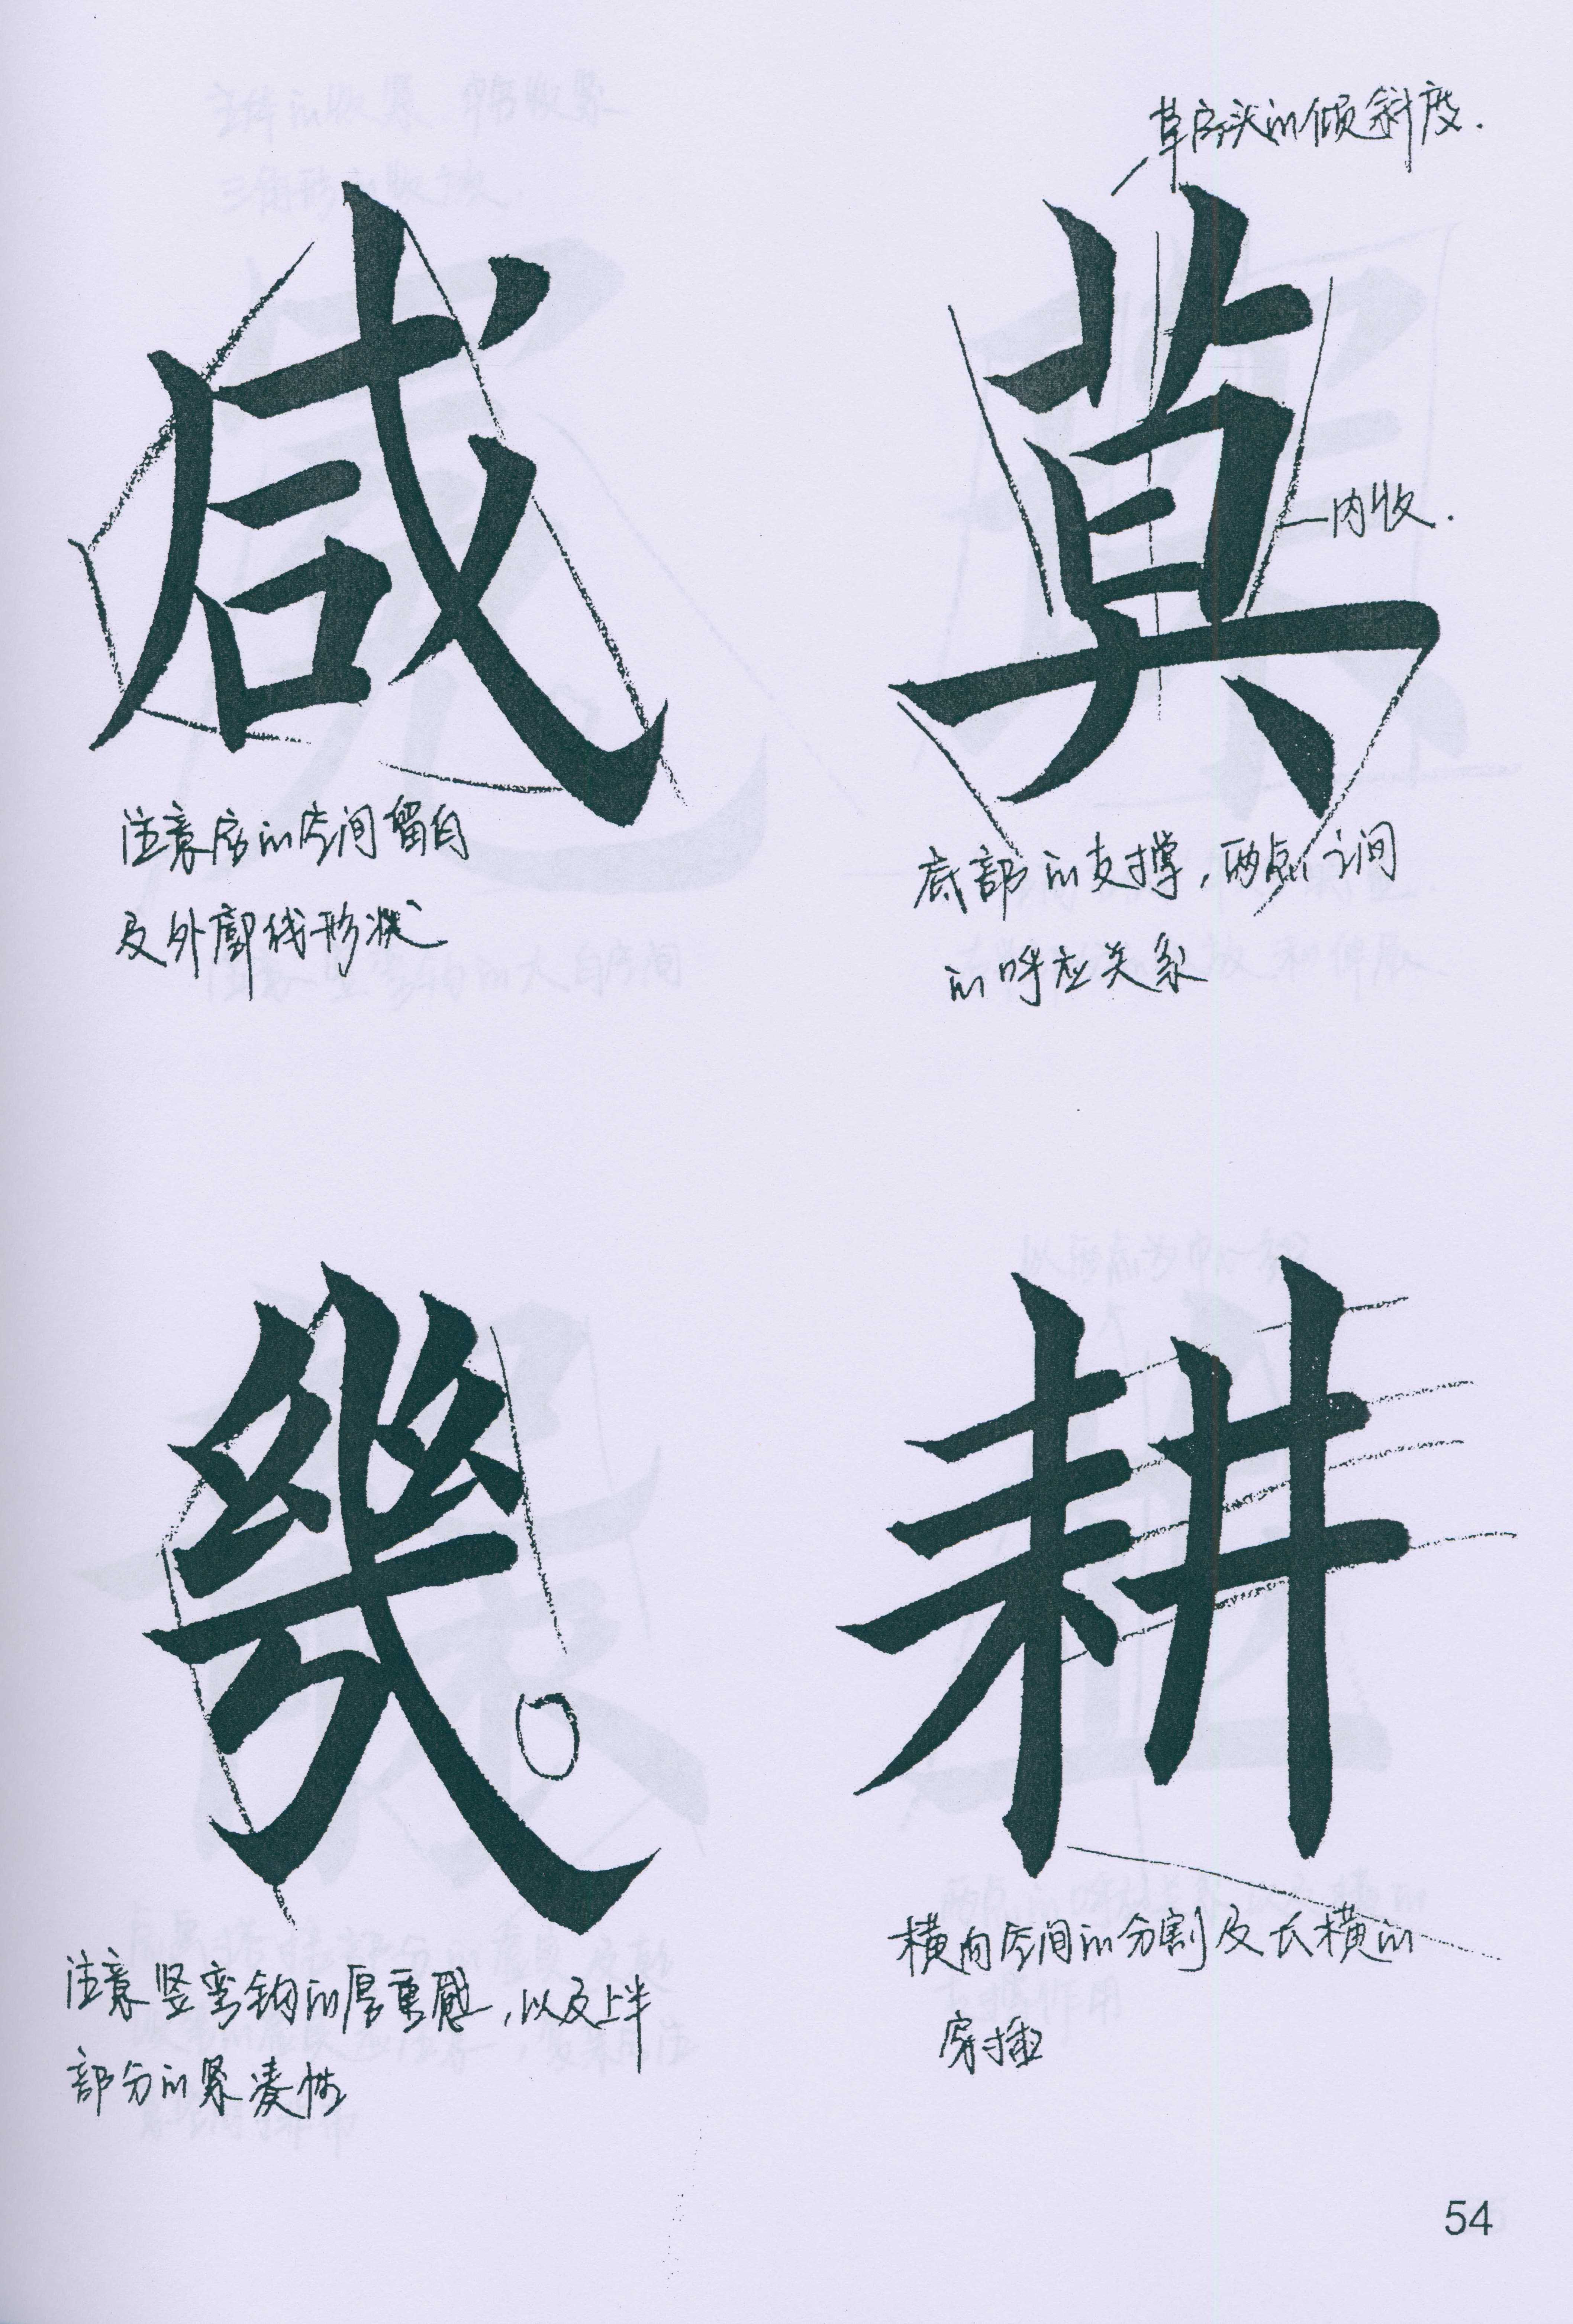 草字头的倾斜度.
咸
莫
内收.
注意 的空间留白
及外廓线形状
底部的支撑,两点之间
的呼应关系
幾
耕
注意竖弯钩的厚重感,以及上半
部分的紧凑性
横向空间的分割及长横的
穿插
54